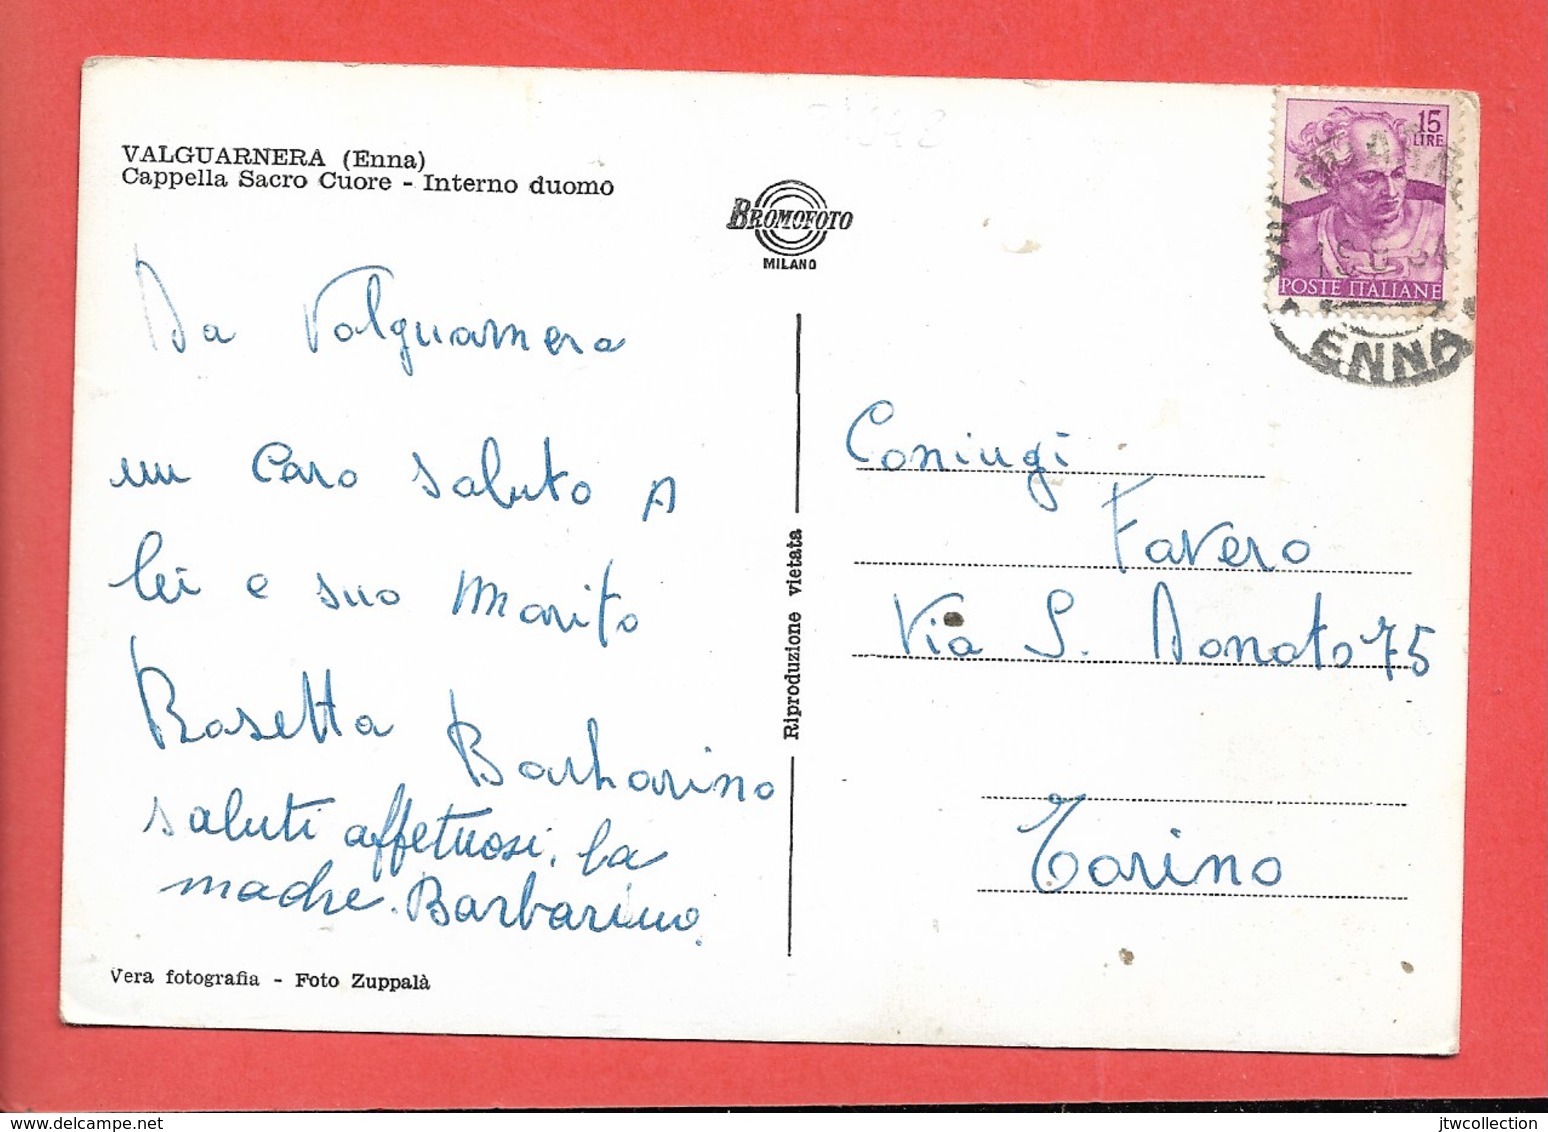 VALGUARNERA (Enna)
Cappella Sacro Cuore - Interno duomo
BROMOFOTO
MILANO
15
LIRE
POSTE ITALIANE
ENNA
Da Valguarnera
un Caro saluto A
lei e suo Marito
Rosetta Barbarino
saluti affettuosi, la
madre. Barbarino.
Vera fotografia - Foto Zuppalà
Riproduzione vietata
Coniugi
Favero
Via S. Donato 75
Torino
jtwcollection